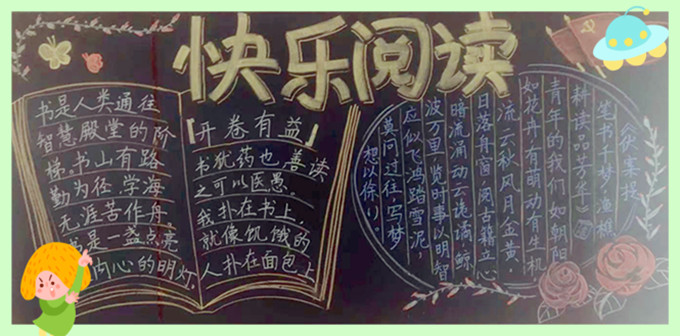 快乐阅读
书是人类通往
智慧殿堂的阶
梯。书山有路
勤为径,学海
无涯苦作舟
是一盏点亮
心的明灯.
【开卷有益】
书犹药也,善读
之可以医愚.
我扑在书上,
就像饥饿的
人扑在面包上
《伏案操
笔书千梦渔樵
耕读品芳华》
青年的我们,如朝阳
如花卉,有萌动有生机
流云秋风月金黄,
日落舟窗,阅古籍立心
暗流涌动云诡谲,鲸
波万里,览时事以明智
应似飞鸿踏雪泥,
莫问过往,写梦
想以